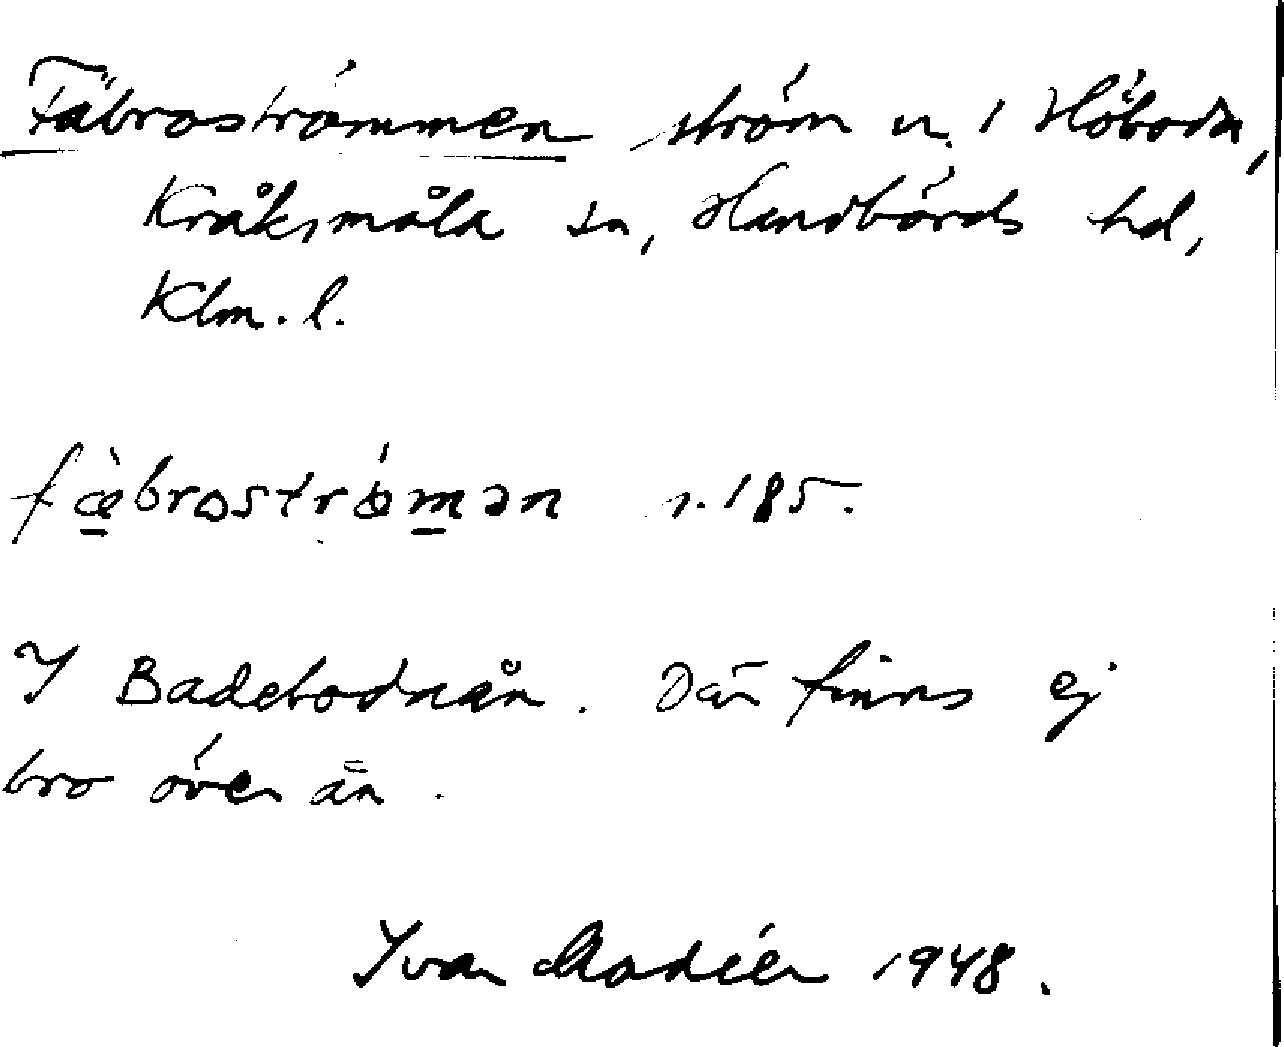 Fäbroströmmen ström n. 1 Höboda,
Kråksmåla sn, Handbörds hd,
Klm. l.
fæ̀broströmən s. 185.
I Badebodaån. Där finns ej
bro över ån.
Ivar Modéer 1948.